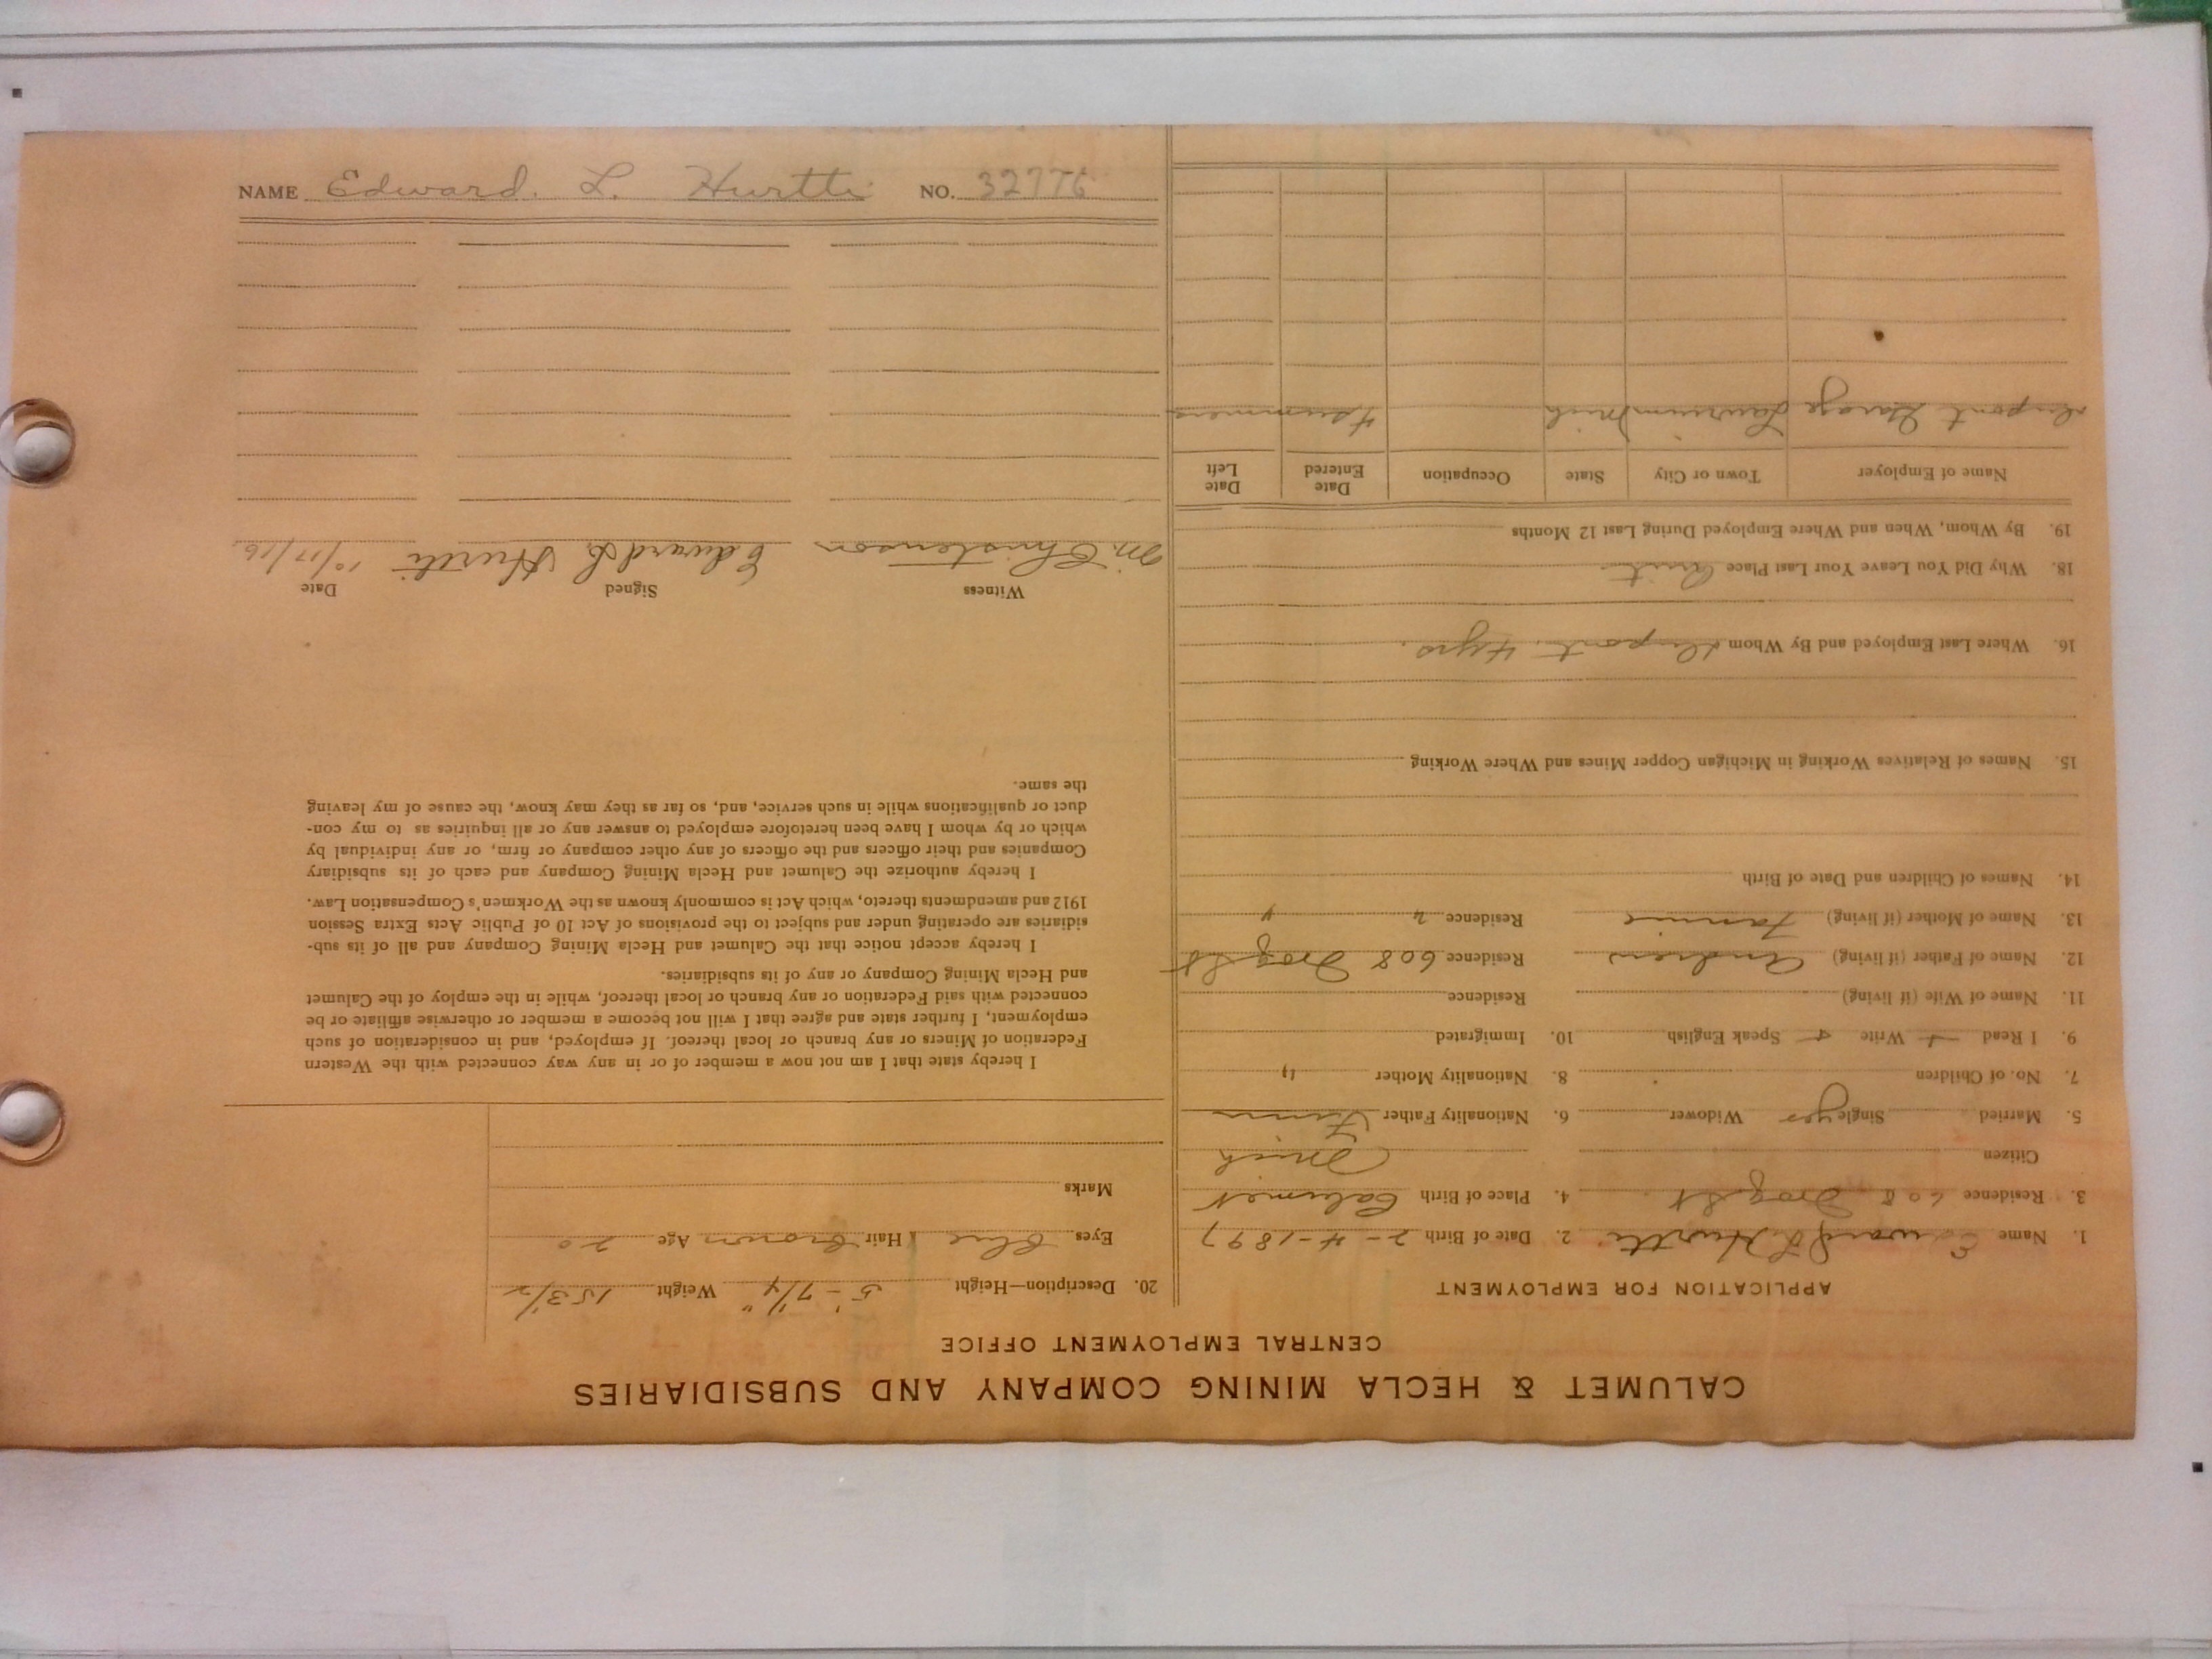 NAME Edward. L. Hurtti NO. 32776
CALUMET & HECLA MINING COMPANY AND SUBSIDIARIES
CENTRAL EMPLOYMENT OFFICE
APPLICATION FOR EMPLOYMENT
1. Name Edward L. Hurtti 2. Date of Birth 2-4-1897
3. Residence 608 St 4. Place of Birth Calumet
Citizen Mich
5. Married Single yes Widower 6. Nationality Father Finn
7. No. of Children 8. Nationality Mother "
9. I Read + Write + Speak English 10. Immigrated
11. Name of Wife (if living) Residence
12. Name of Father (if living) Andrew Residence 608 St
13. Name of Mother (if living) Fannie Residence " "
14. Names of Children and Date of Birth
15. Names of Relatives Working in Michigan Copper Mines and Where Working
16. Where Last Employed and By Whom 4 yrs.
18. Why Did You Leave Your Last Place Quit
19. By Whom, When and Where Employed During Last 12 Months
Name of Employer Town or City State Occupation Date Entered Date Left
Garage Laurium Mich 4 summers
20. Description—Height 5'-7 1/4" Weight 153 1/2
Eyes Blue Hair Brown Age 20
Marks
I hereby state that I am not now a member of or in any way connected with the Western
Federation of Miners or any branch or local thereof. If employed, and in consideration of such
employment, I further state and agree that I will not become a member or otherwise affiliate or be
connected with said Federation or any branch or local thereof, while in the employ of the Calumet
and Hecla Mining Company or any of its subsidiaries.
I hereby accept notice that the Calumet and Hecla Mining Company and all of its sub-
sidiaries are operating under and subject to the provisions of Act 10 of Public Acts Extra Session
1912 and amendments thereto, which Act is commonly known as the Workmen's Compensation Law.
I hereby authorize the Calumet and Hecla Mining Company and each of its subsidiary
Companies and their officers and the officers of any other company or firm, or any individual by
which or by whom I have been heretofore employed to answer any or all inquiries as to my con-
duct or qualifications while in such service, and, so far as they may know, the cause of my leaving
the same.
Witness Signed Date
M. Christenson Edward L. Hurtti 10/17/16